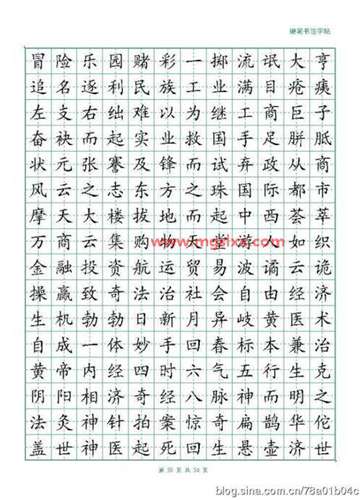 硬笔书法字帖
冒险乐园赌彩一掷流氓大亨
追名逐利民族工业满目疮痍
左支右绌难以为继工商巨子
奋袂而起实业救国手足胼胝
状元张謇及锋而试弃政从商
风云之志东方之珠国际都市
摩天大楼拔地而起中西荟萃
万商云集购物天堂游人如织
金融投资航运贸易波谲云诡
操赢致奇法治社会自由经济
生机勃勃日新月异岐黄医术
自成一体妙手回春标本兼治
黄帝内经四时六气五行生克
阴阳相济奇经八脉神而明之
法灸神针拍案惊奇扁鹊华佗
盖世神医起死回生悬壶济世
blog.sina.com.cn/78a01b04c